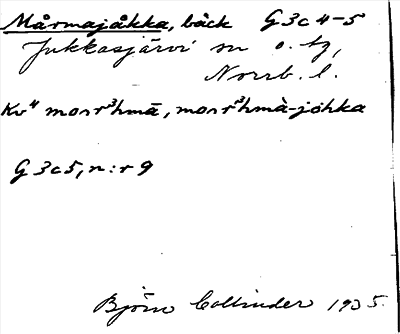 Mårmajåkka, bäck G 3 c 4-5
Jukkasjärvi sn o. tg,
Norrb. l.
Kv⁴ morr³hmā, morr³hmà-johka
G 3 c 5, n:r 9
Björn Collinder 1935.